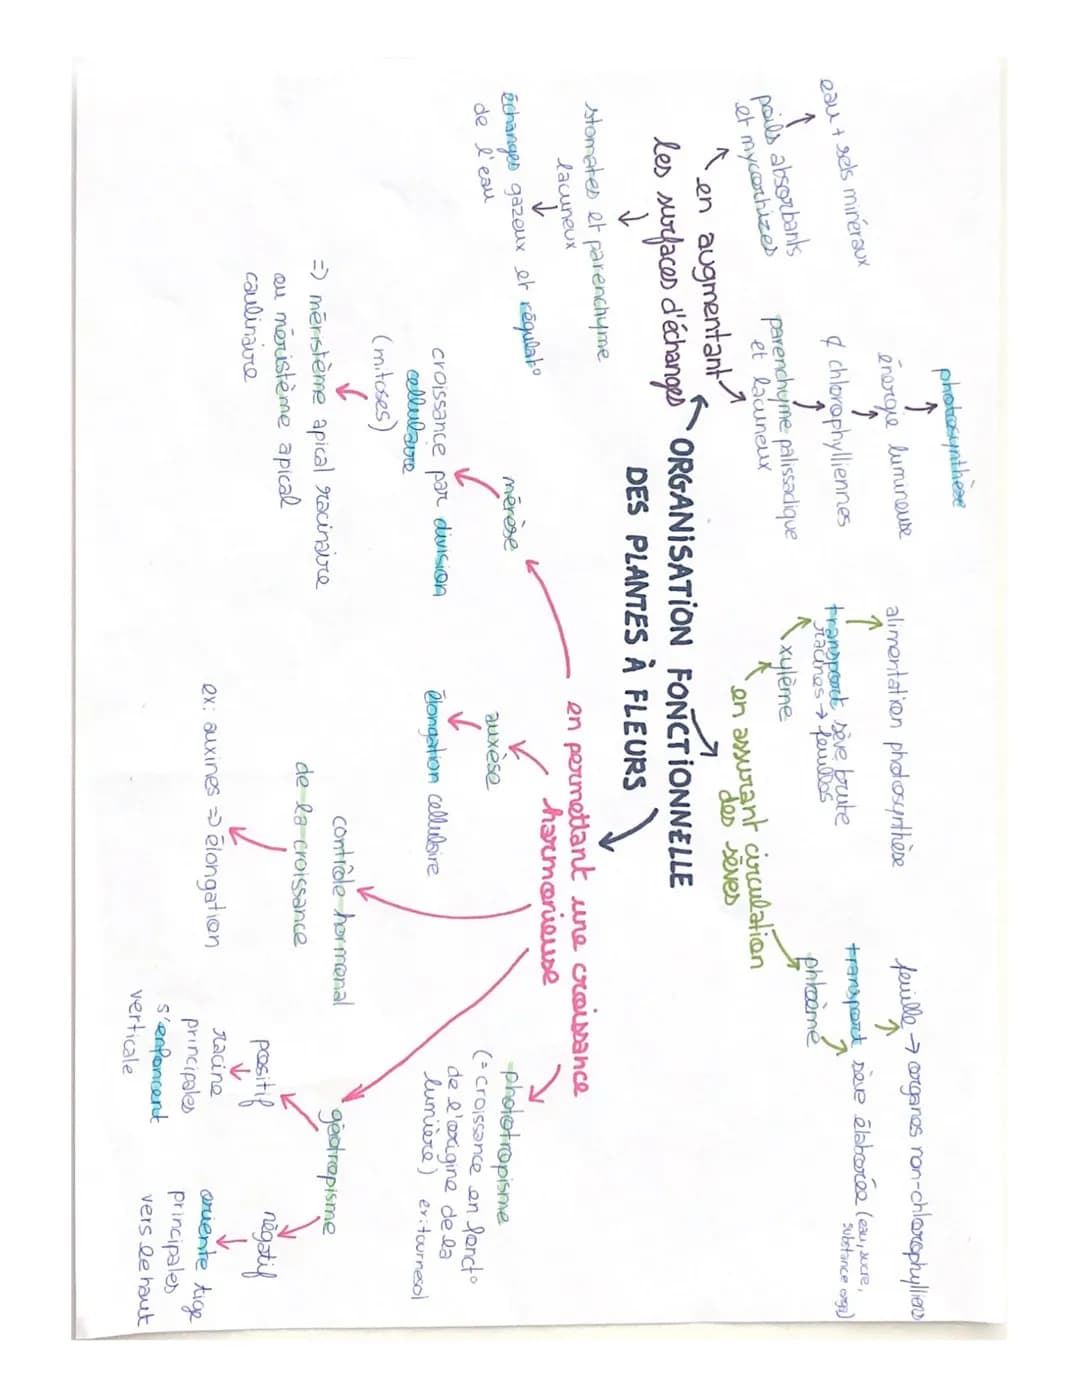 ORGANISATION FONCTIONNELLE
DES PLANTES À FLEURS
en augmentant
les surfaces d'échanges
poils absorbants
et mycorhizes
eau + sels minéraux
parenchyme palissadique
et lacuneux
¢ chlorophylliennes
énergie lumineuse
photosynthèse
stomates et parenchyme
lacuneux
échanges gazeux et régulat°
de l'eau
en assurant circulation
des sèves
xylème
transport sève brute
racines → feuilles
alimentation photosynthèse
phloème
transport sève élaborée (eau, sucre,
substance orga)
feuille → organes non-chlorophylliens
en permettant une croissance
harmonieuse
mérèse
croissance par division
cellulaire
(mitoses)
=) méristème apical racinaire
ou méristème apical
caulinaire
auxèse
élongation cellulaire
contrôle hormonal
de la croissance
ex: auxines => élongation
phototropisme
(= croissance en fonct°
de l'origine de la
lumière) ex: tournesol
géotropisme
positif
racine
principales
s'enfoncent
verticale
négatif
oriente tige
principales
vers le haut